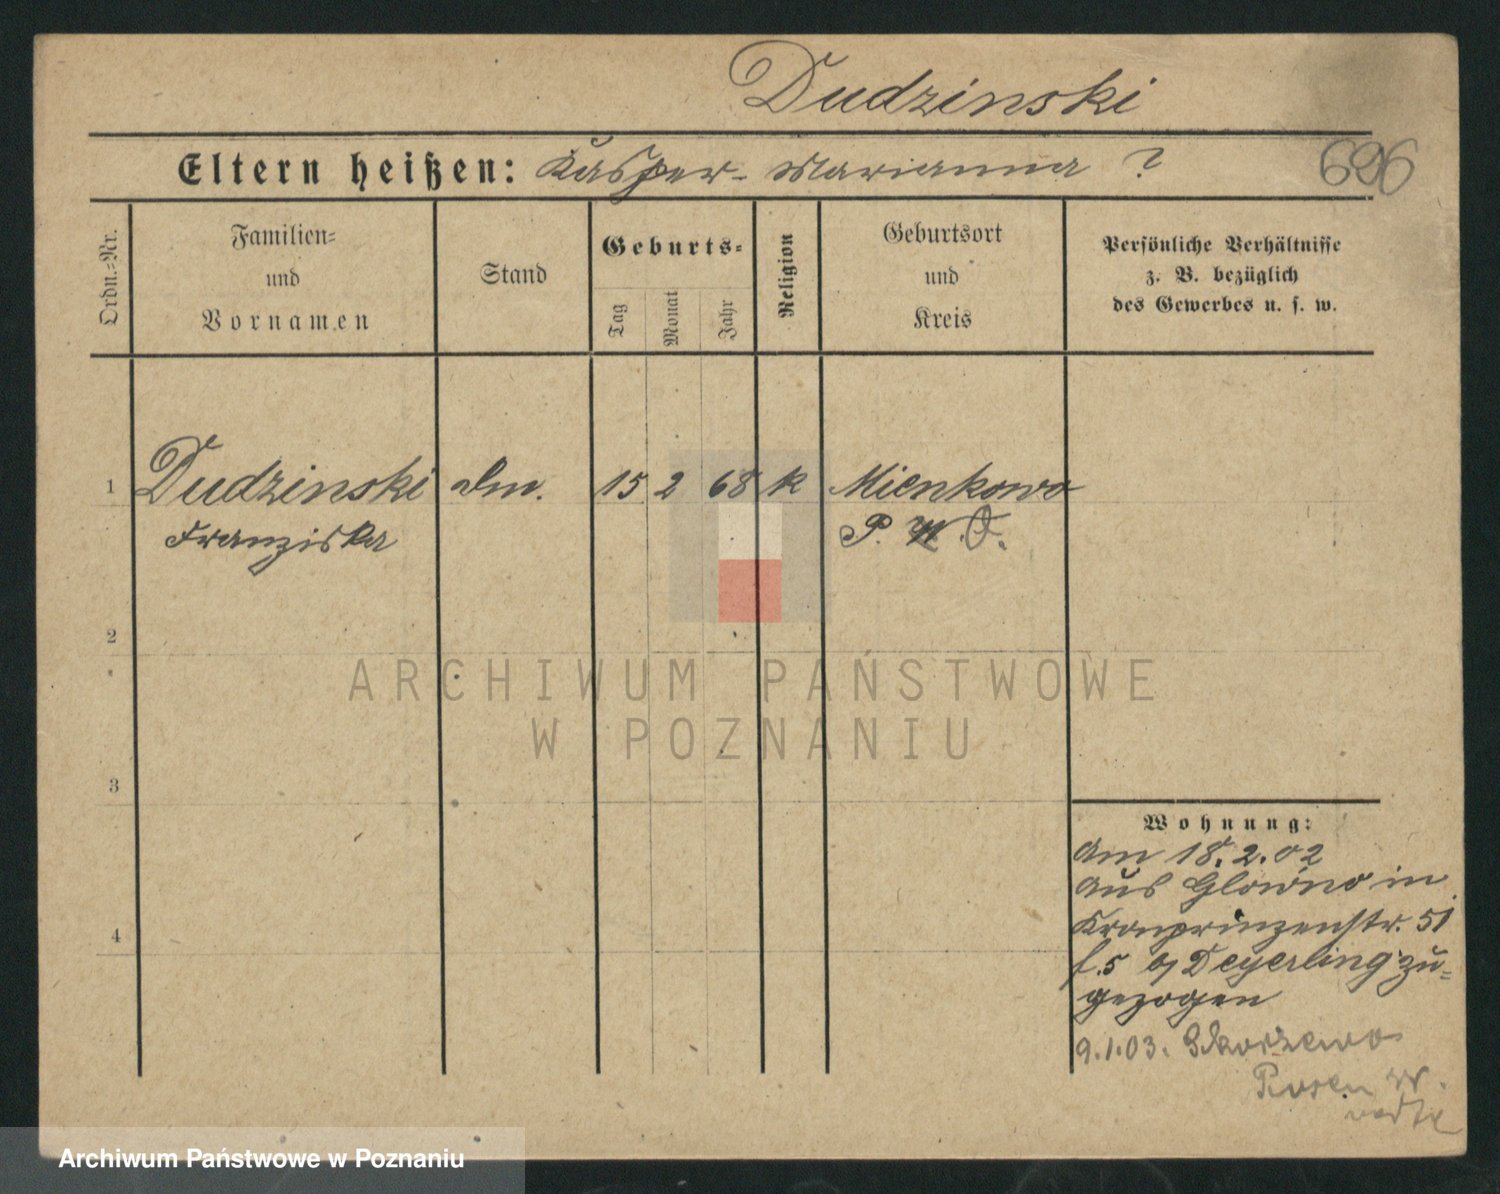 Dudzinski
Eltern heißen: Kasper - Marianna ?
696
Ordn.-Nr.
Familien-
und
Vornamen
Stand
Geburts-
Tag
Monat
Jahr
Religion
Geburtsort
und
Kreis
Persönliche Verhältnisse
z. B. bezüglich
des Gewerbes u. s. w.
1 Dudzinski 15 2 68 k Mienkowo
Franziska P. W. O.
2
3
4
ARCHIWUM PAŃSTWOWE
W POZNANIU
Wohnung:
Am 18.2.02
aus Glowno in
Kronprinzenstr. 51
b/ Deyerling zu-
gezogen
9.1.03. Skorzewo
Posen W.
Archiwum Państwowe w Poznaniu